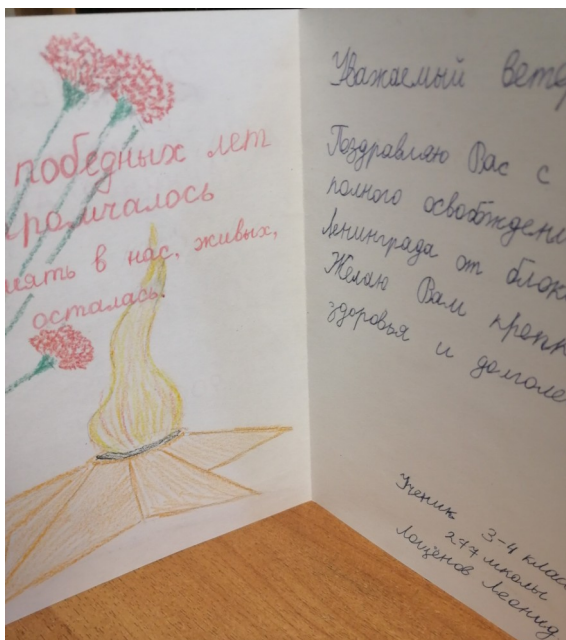 победных лет
промчалось
мять в нас, живых,
осталась.
Уважаемый вете
Поздравляю Вас с
полного освобождени
Ленинграда от блок
Желаю Вам крепк
здоровья и долголе
Ученик 3-4 класс
277 школы
Лащёнов Леонид